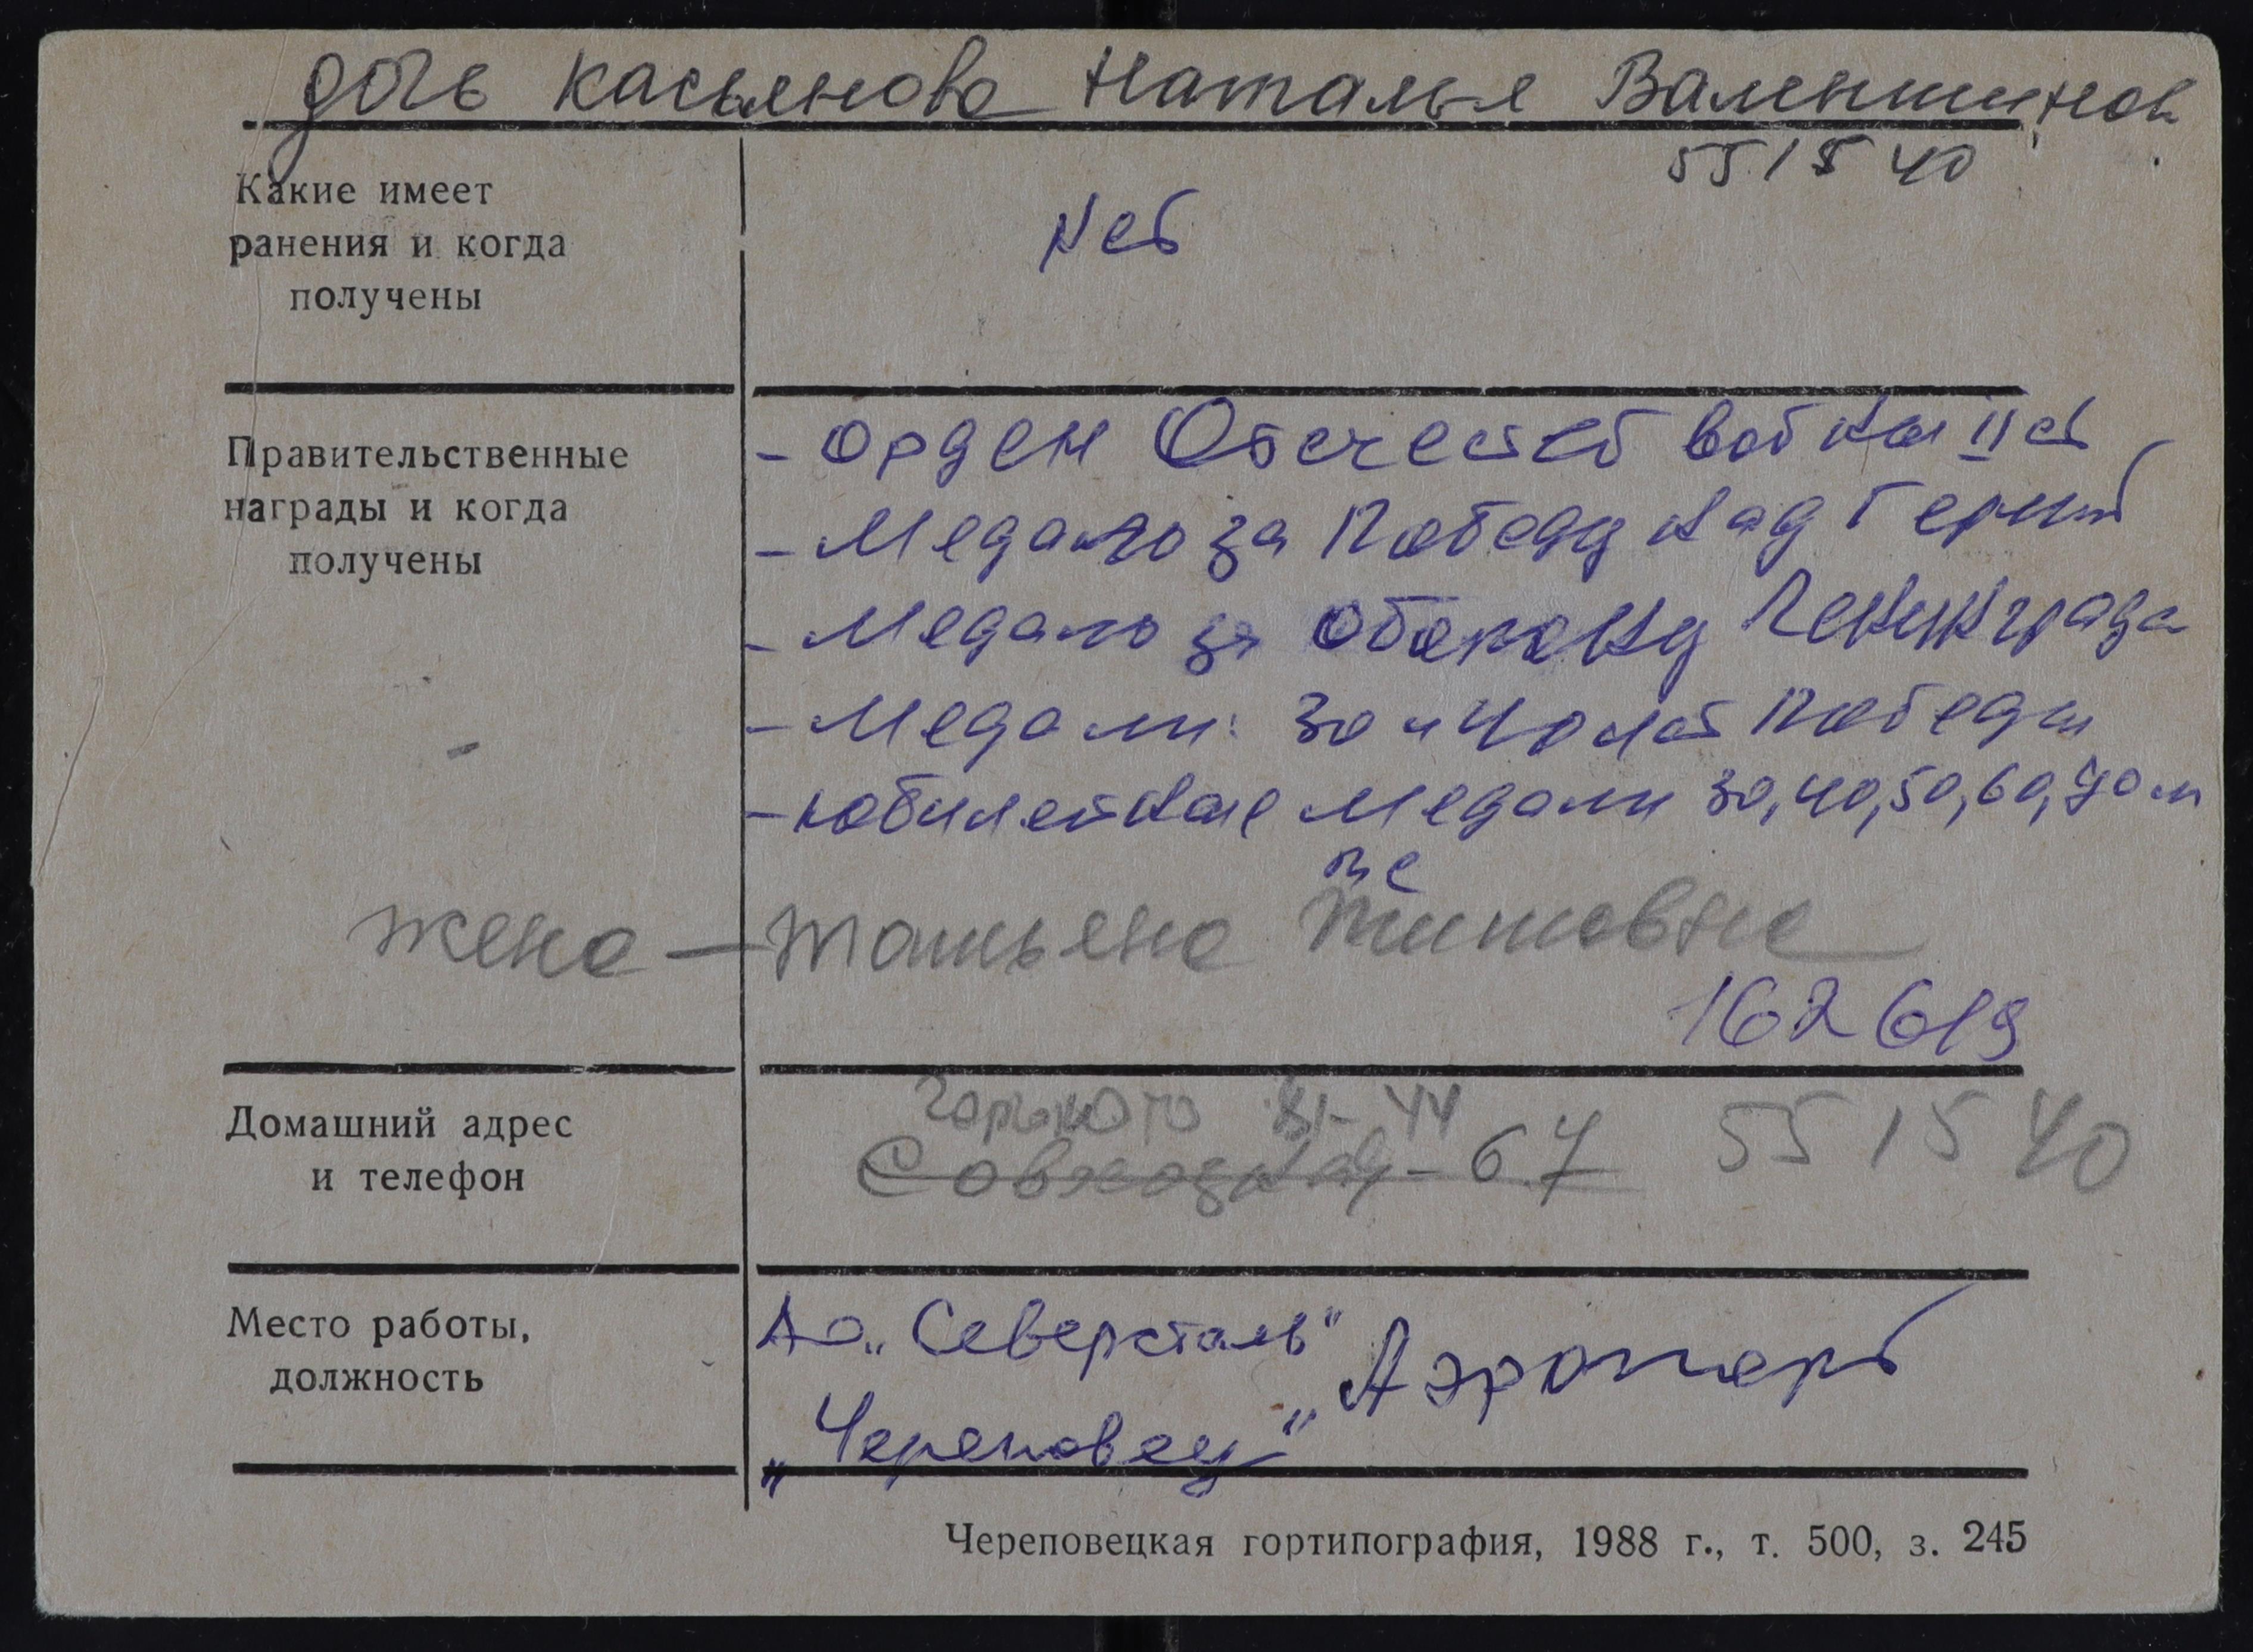 дочь Касьянова Наталья Валентинов
551540
Какие имеет
ранения и когда
получены
Нет
Правительственные
награды и когда
получены
- Орден Отечест войны II ст
- Медаль за Победу над Герм
- Медаль за Оборону Ленинграда
- Медали: 30 и 40 лет Победы
- юбилейные медали 30, 40, 50, 60, 70 л
жена — Татьяна Титовна
162619
Домашний адрес
и телефон
Горького 81-44
Совхозная - 67 551540
Место работы,
должность
АО „Северсталь"
Аэропорт
„Череповец"
Череповецкая гортипография, 1988 г., т. 500, з. 245